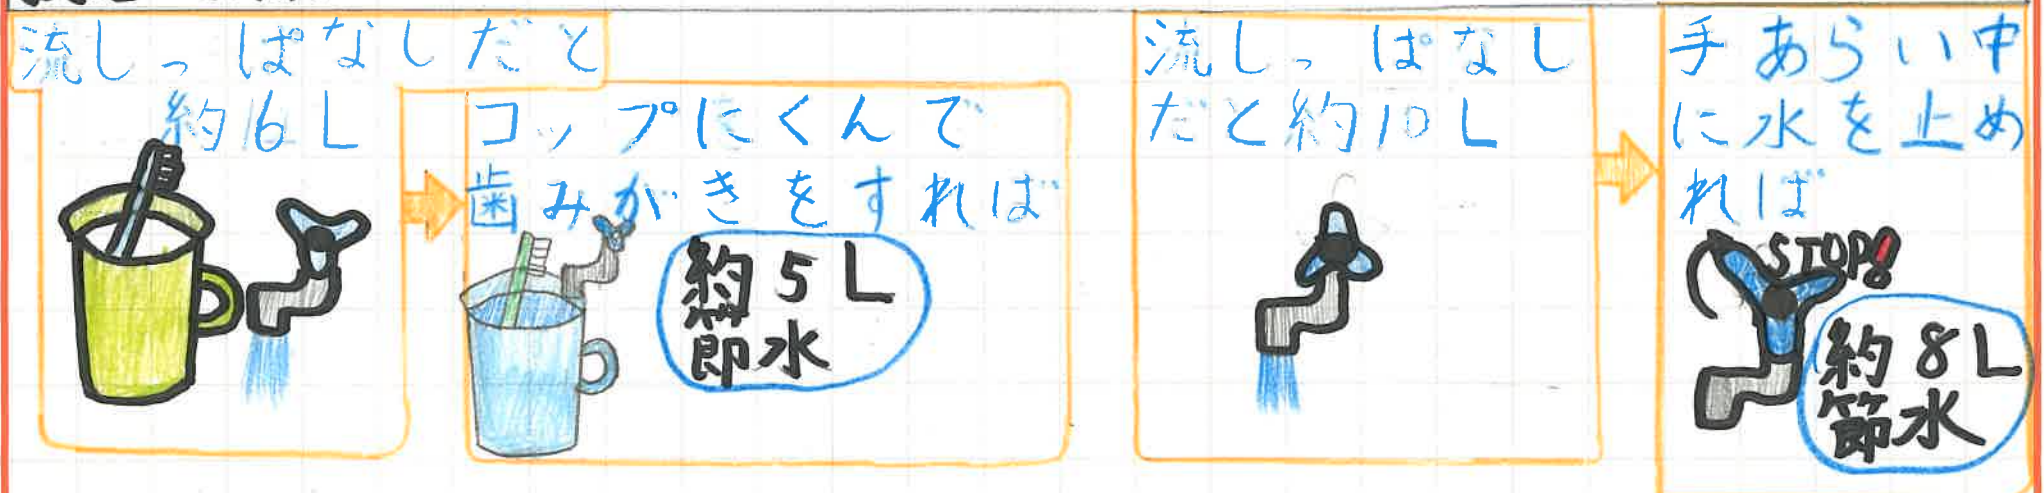 流しっぱなしだと
約6L
コップにくんで
歯みがきをすれば
約5L
節水
流しっぱなし
だと約10L
手あらい中
に水を止め
れば
STOP!
約8L
節水